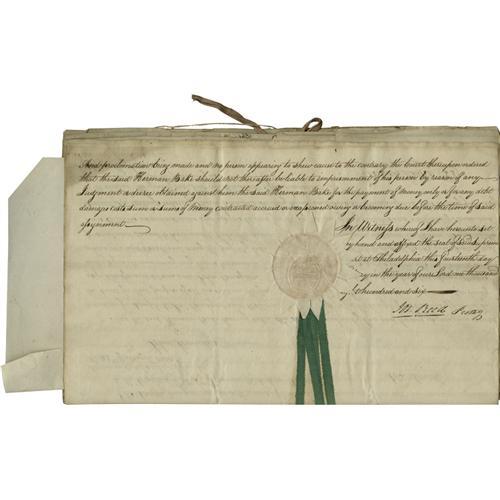 And proclamation being made and no person appearing to shew cause to the contrary the Court thereupon ordered
that the said Herman Bake should not thereafter be liable to imprisonment of his person by reason of any
Judgment or decree obtained against him the said Herman Bake for the payment of money only or for any debt
damages costs sum or sums of money contracted accrued or occasioned owing or becoming due before the time of said
assignment
In Witness whereof I have hereunto set
my hand and affixed the seal of said Supreme
Court at Philadelphia this day
in the year of our Lord one thousand
hundred and six
Reed Protey